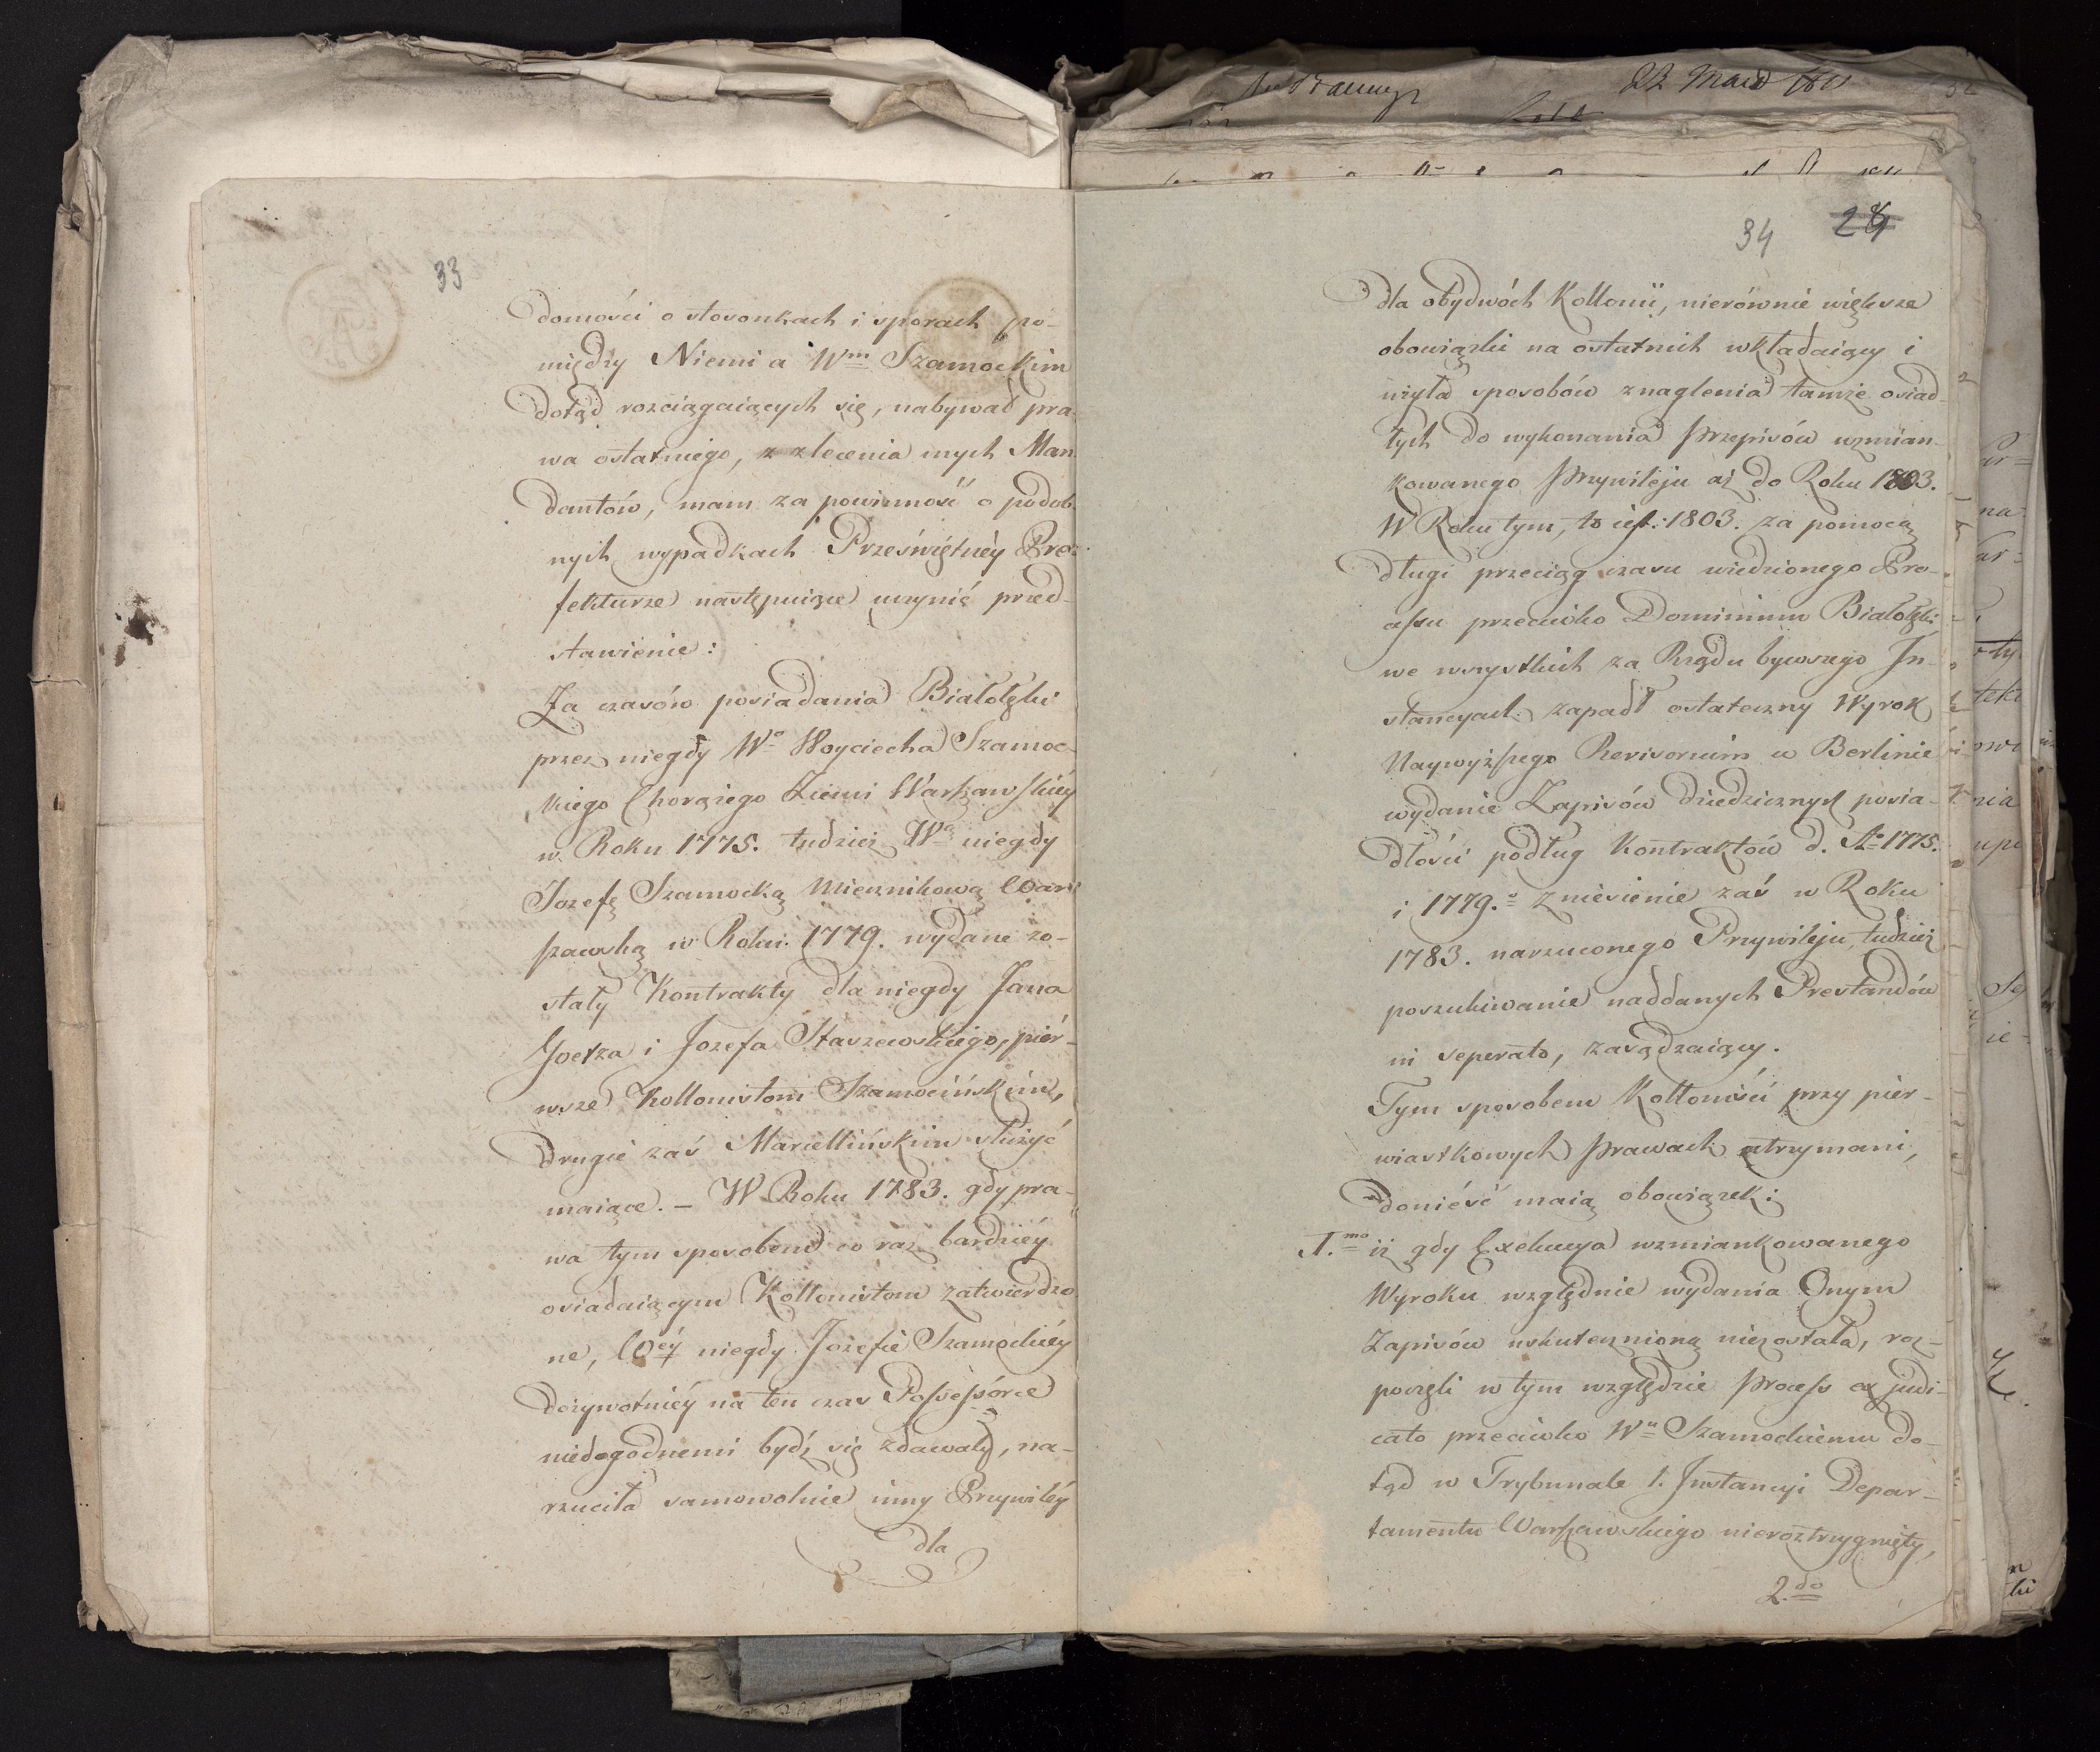 33
domości o stosonkach i sporach po-
między Niemi a Wm Szamockim
dotąd rozciągaiących się, nabywał pra-
wa ostatniego, z zlecenia mych Man-
dantów, mam za powinność o podob-
nych wypadkach Przeświętnéy Pre-
fekturze następuiące uczynić przed-
stawienie:
Za czasów posiadania Białołęki
przez niegdy Wo Woyciecha Szamoc-
kiego Chorążego Ziemi Warszawskiéy
w Roku 1775. tudzież Wą niegdy
Jozefę Szamocką Miecznikową War-
szawską w Roku 1779. wydane zo-
stały Kontrakty dla niegdy Jana
Goetza i Jozefa Staszewskiego, piér-
wsze Kollonistom Szamocińskim,
drugie zaś Marcellińskim służyć
maiące. – W Roku 1783. gdy pra-
wa tym sposobem co raz bardziéy
osiadaiącym Kollonistom zatwierdzo
ne, Wéy niegdy Jozefie Szamockiéy
dożywotniéy na ten czas Possessórce
niedogodnemi bydź się zdawały, na-
rzuciła samowolnie inny Przywiléy
dla
22 Marca 1811
34 28
dla obydwóch Kollonii, nierównie większe
obowiązki na ostatnich wkładaiący i
użyła sposobów znaglenia tamże osiad-
łych do wykonania przepisów wzmian-
kowanego Przywileju aż do Roku 1803.
W Roku tym, to iest: 1803. za pomocą
długi przeciąg czasu wiedzionego Pro-
cessu przeciwko Dominium Białołęki
we wszystkich za Rządu bywszego In-
stancyach zapadł ostateczny Wyrok
Naywyższego Revisorium w Berlinie
wydanie Zapisów dziedzicznych posia-
dłości podług Kontraktów d. Ao 1775.
i 1779.o zniesienie zaś w Roku
1783. narzuconego Przywileju, tudzież
poszukiwanie naddanych Prestandów
in seperato, zasądzaiący.
Tym sposobem Kolloniści przy pier-
wiastkowych prawach utrzymani,
donieść maią obowiązek:
1.mo iż gdy Exekucya wzmiankowanego
Wyroku względnie wydania Onym
Zapisów uskutecznioną niezostała, roz-
poczęli w tym względzie process ex judi-
cato przeciwko Wu Szamockiemu do-
tąd w Trybunale 1. Instancyi Depar-
tamentu Warszawskiego nieroztrzygnięty,
2.do